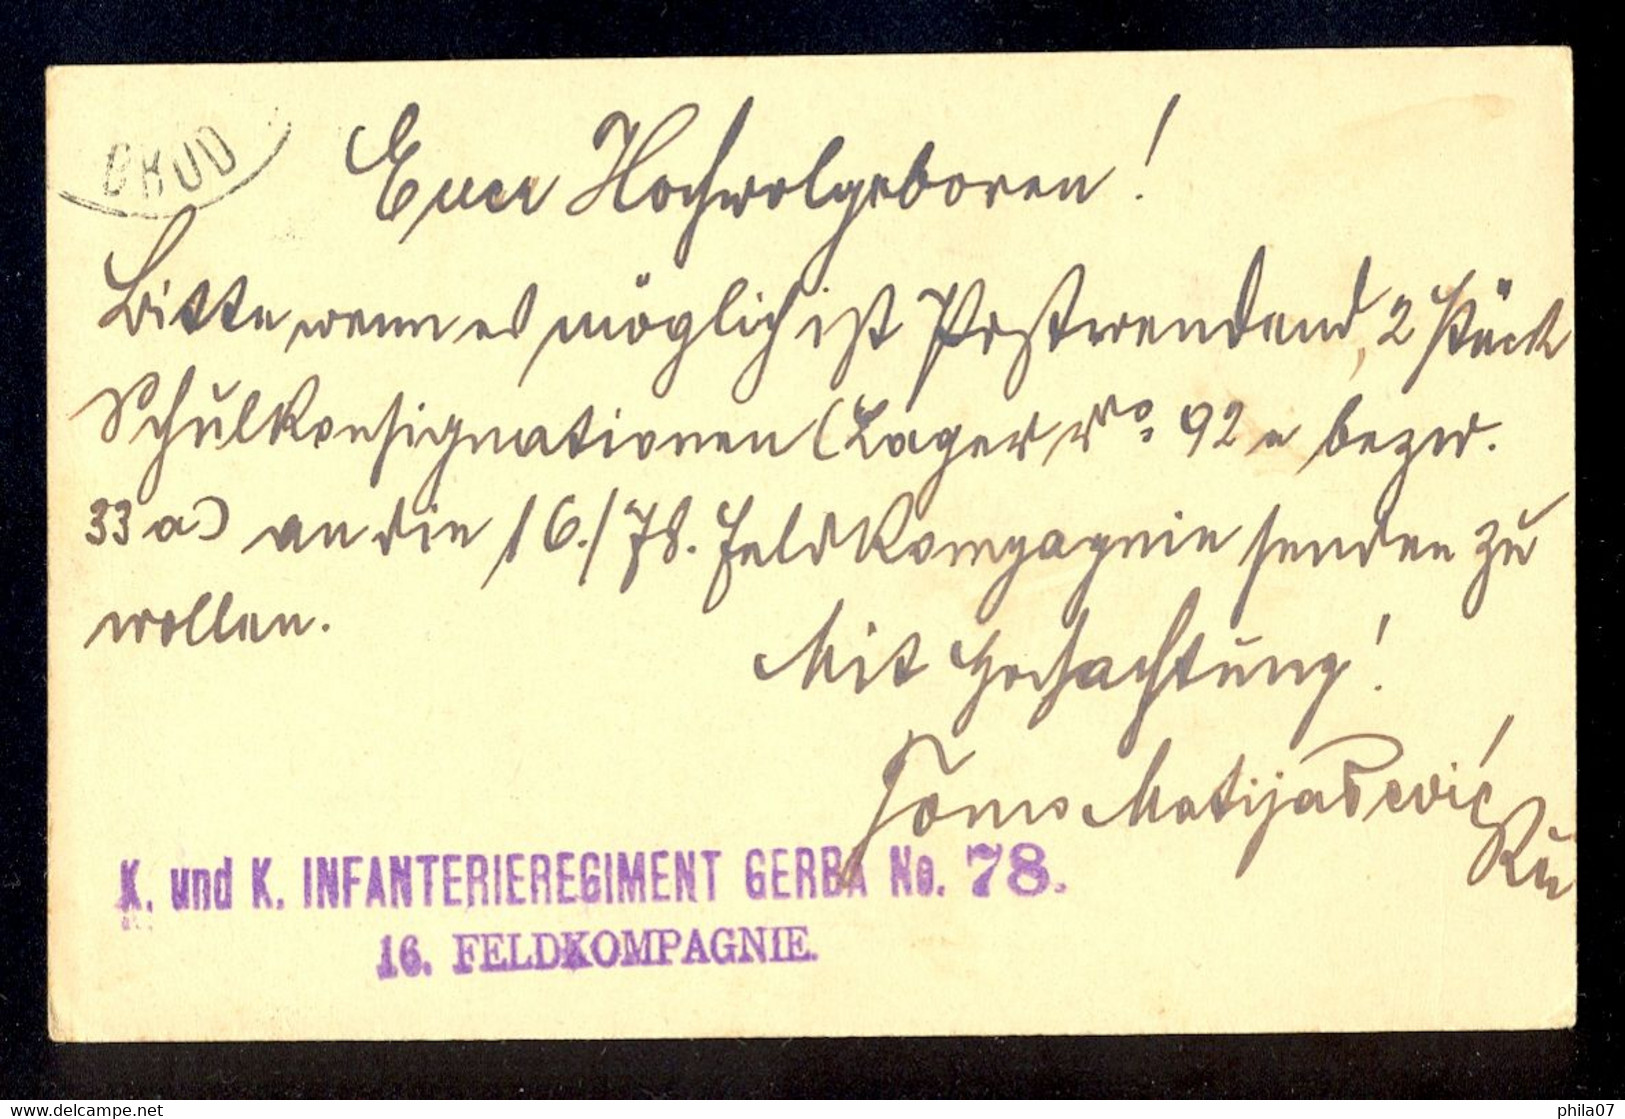 Euer Hochwolgeboren!
Bitte wenn es möglich ist Postwendend, 2 Stück
Schulkonsignationen (Lager No. 92 a bezw.
33 a) an die 16./78. Feldkompagnie senden zu
wollen.
Mit Hochachtung!
Tomo Matijašević
K. und K. INFANTERIEREGIMENT GERBA No. 78.
16. FELDKOMPAGNIE.
www.delcampe.net
phila07